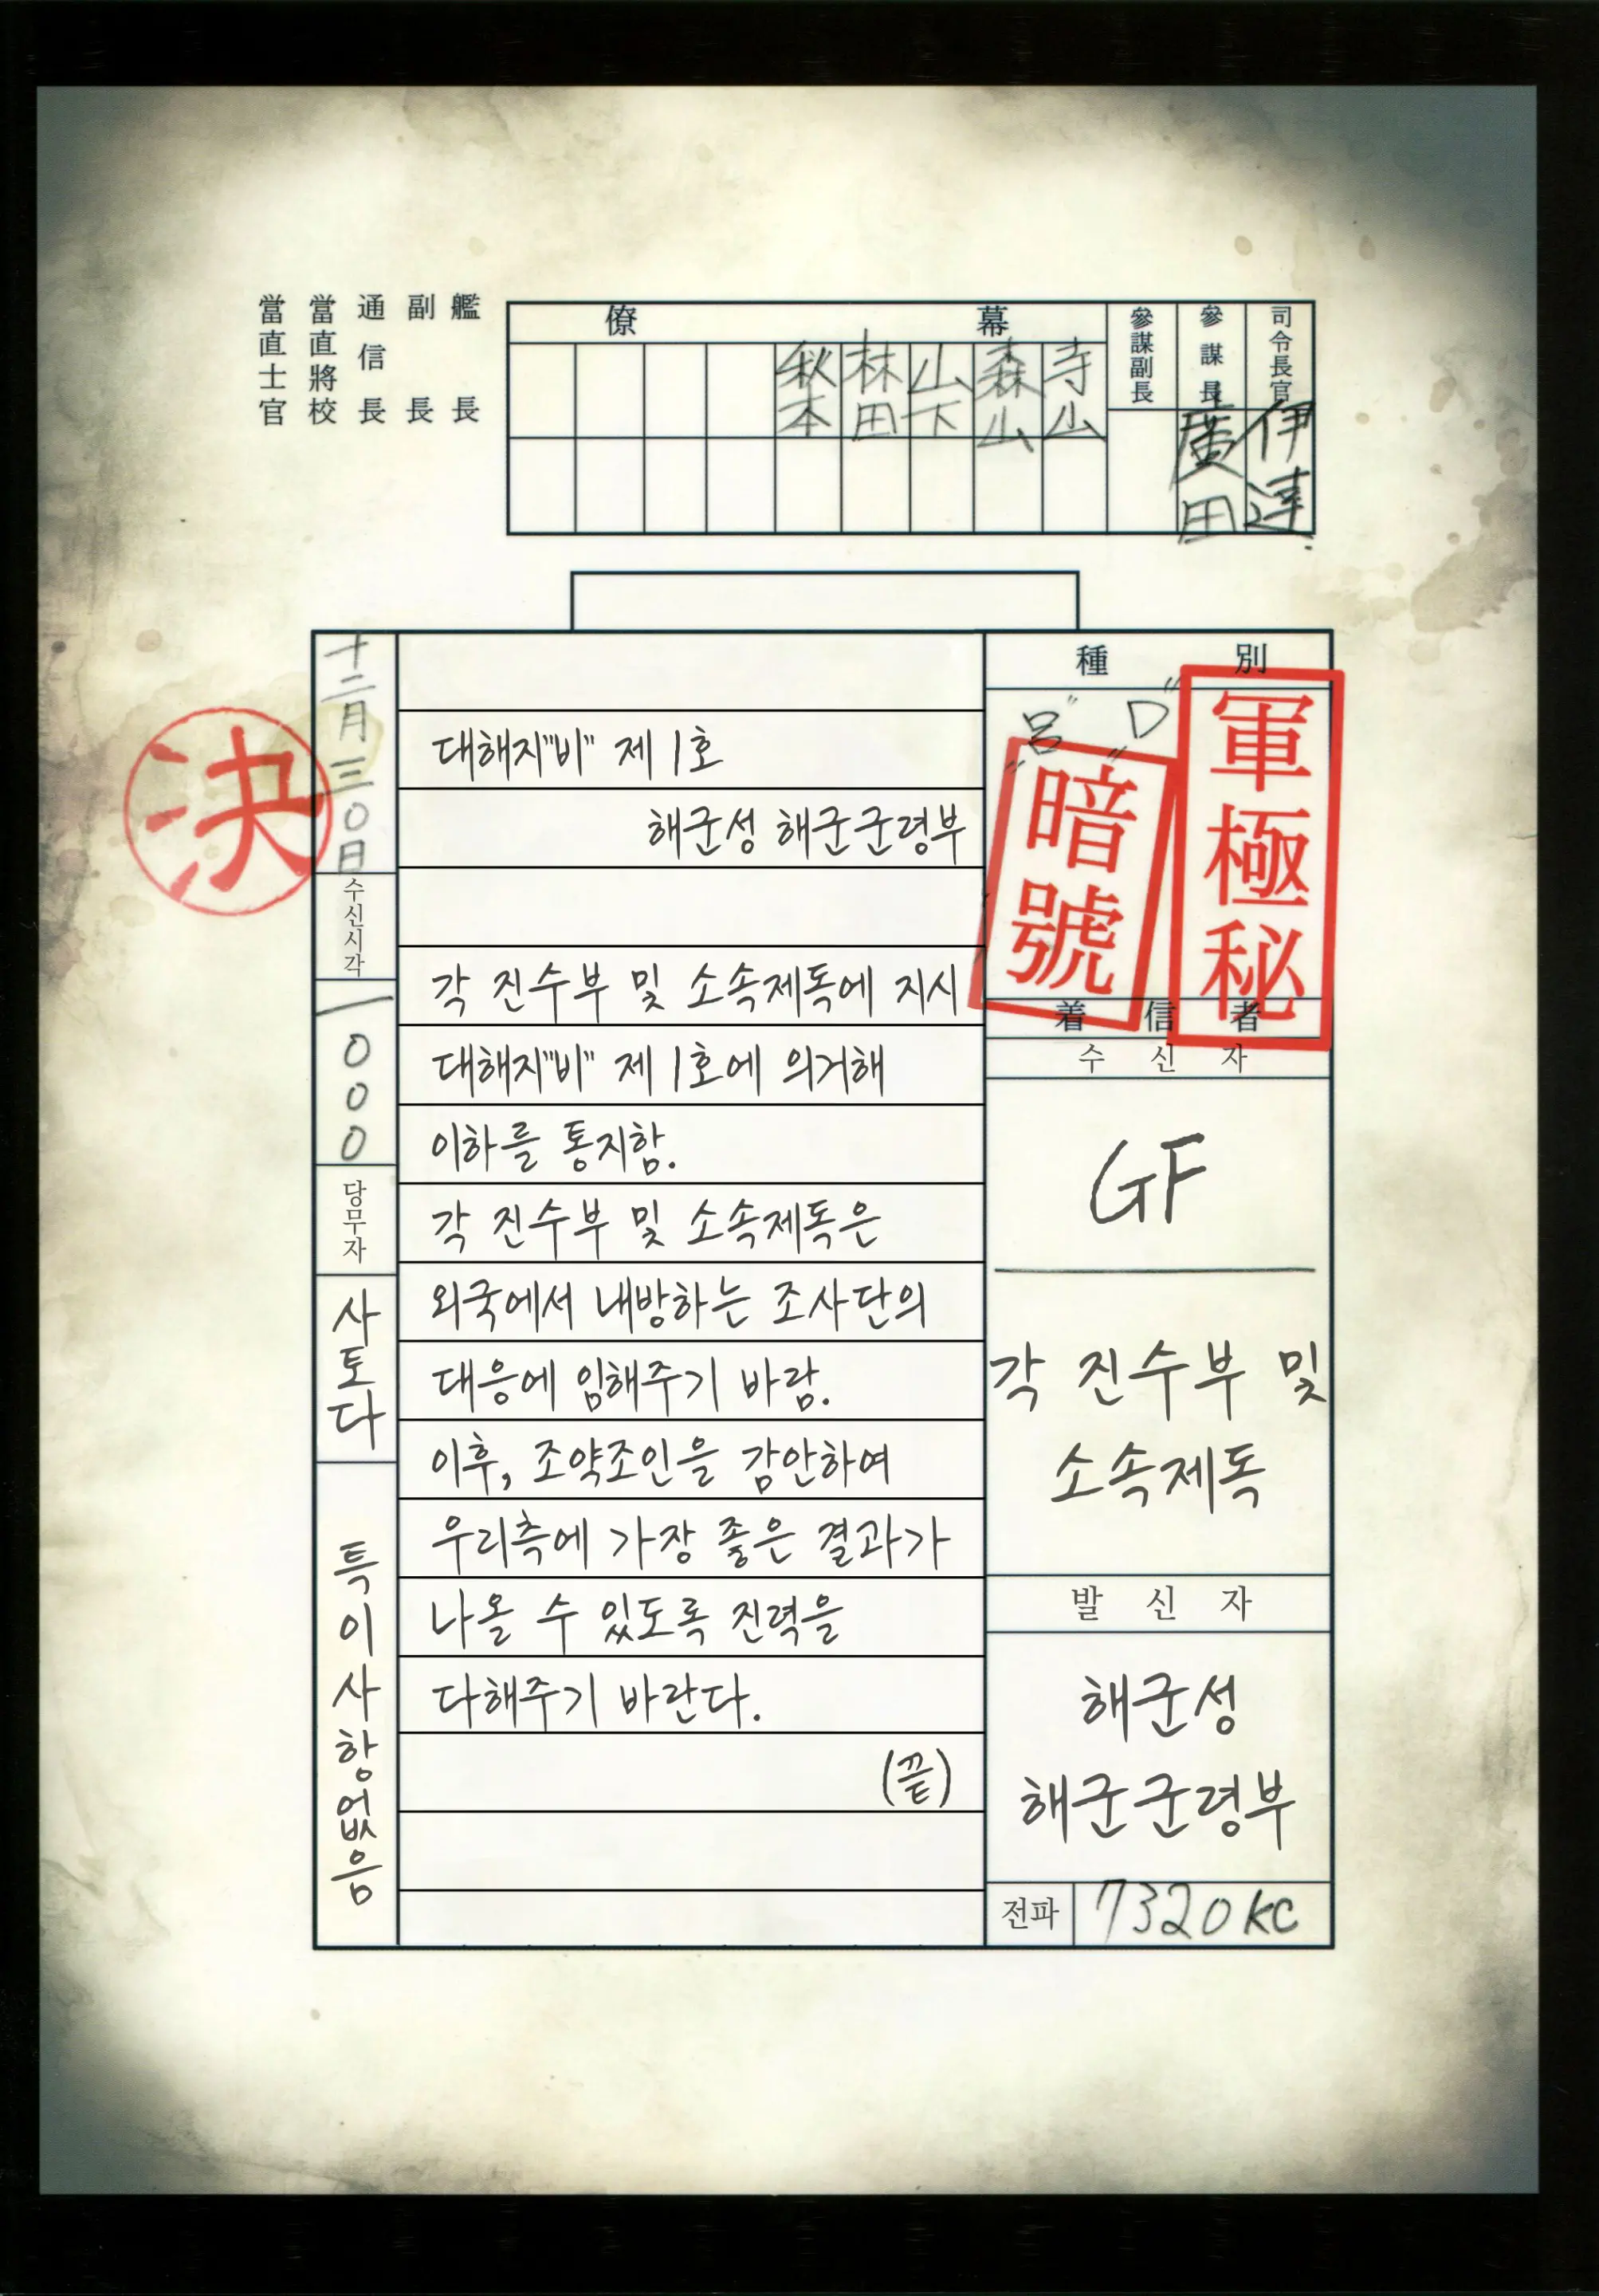 當直士官
當直將校
通信長
副長
艦長
僚幕
參謀副長
參謀長
司令長官
秋本
林田
山下
森山
寺山
廣田
伊達
決
十二月三〇日
수신시각
一〇〇〇
당무자
사토다
특이사항없음
대해지"비" 제 1호
해군성 해군군령부
각 진수부 및 소속제독에 지시
대해지"비" 제 1호에 의거해
이하를 통지함.
각 진수부 및 소속제독은
외국에서 내방하는 조사단의
대응에 임해주기 바람.
이후, 조약조인을 감안하여
우리측에 가장 좋은 결과가
나올 수 있도록 진력을
다해주기 바란다.
(끝)
種別
"呂" "D"
暗號
軍極秘
着信者
수신자
GF
각 진수부 및
소속제독
발신자
해군성
해군군령부
전파 7320KC